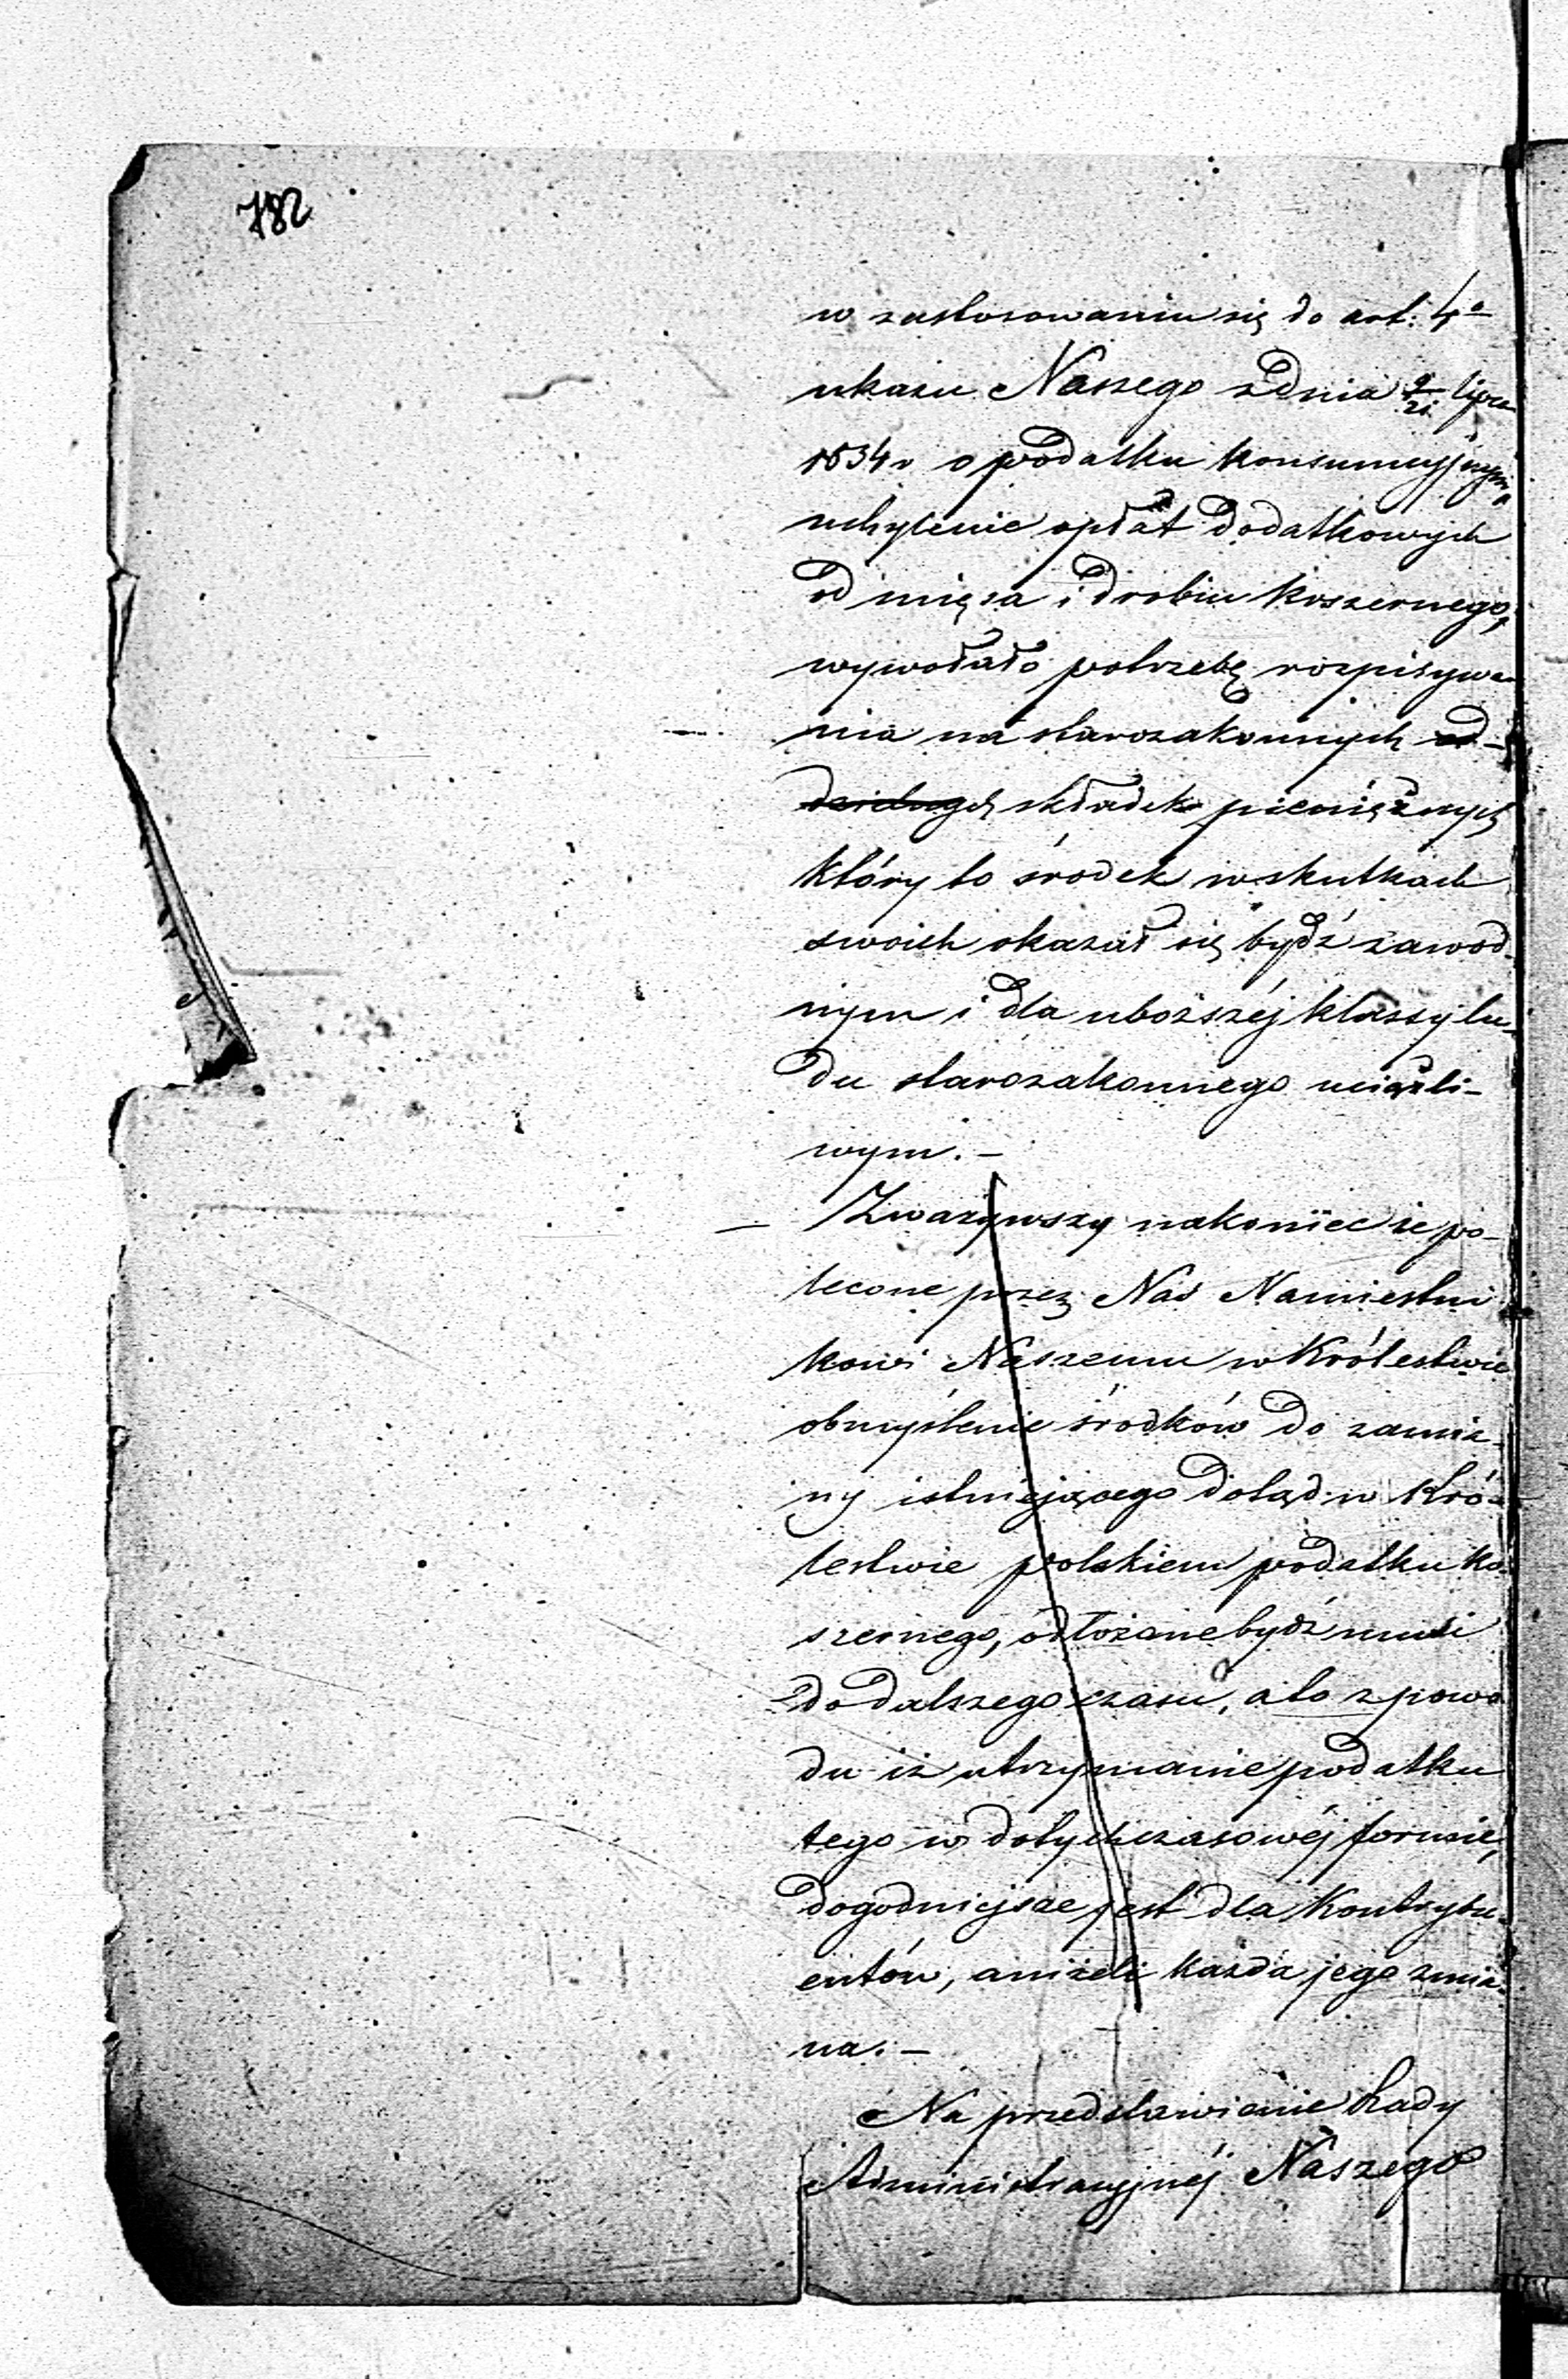 782
w zastosowaniu się do art: 4º
ukazu Naszego z dnia 9/21 lipca
1834 r o podatku konsumcyjnym,
uchylenie opłat dodatkowych
od mięsa i drobiu koszernego,
wywołało potrzebę rozpisywa-
nia na starozakonnych od-
dzielnych składek pieniężnych
który to środek w skutkach
swoich okazał się bydź zawod-
nym i dla uboższéj klassy lu-
du starozakonnego uciążli-
wym. –
Zważywszy nakoniec że po-
lecone przez Nas Namiestni
kowi Naszemu w Królestwie
obmyślenie środków do zamia-
ny istniejącego dotąd w Kró-
lestwie polskiem podatku ko-
szernego, odłożone bydź musi
do dalszego czasu, a to z powo
du iż utrzymanie podatku
tego w dotychczasowéj formie,
dogodniejsze jest dla Kontrybu-
entów, aniżeli każda jego zmia-
na. –
Na przedstawienie Rady
Administracyjnéj Naszego